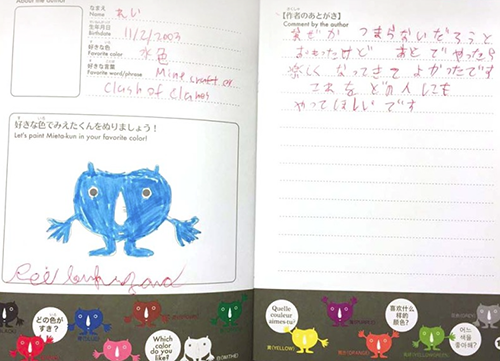 About the author
なまえ
Name
れい
生年月日
Birthdate
11/2/2003
好きな色
Favorite color
水色
好きな言葉
Favorite word/phrase
Minecraft or
Clash of Clans
好きな色でみえたくんをぬりましょう!
Let's paint Mieta-kun in your favorite color!
【作者のあとがき】
Comment by the author
つまらないだろうと
おもったけど あとでやったら
楽しくなってきてよかったです
これをどの人にも
やってほしいです
どの色が
すき?
Which
color do
you like?
Quelle
couleur
aimes-tu?
黄(YELLOW)
喜欢什么
样的
颜色?
어느
색을
좋아해?